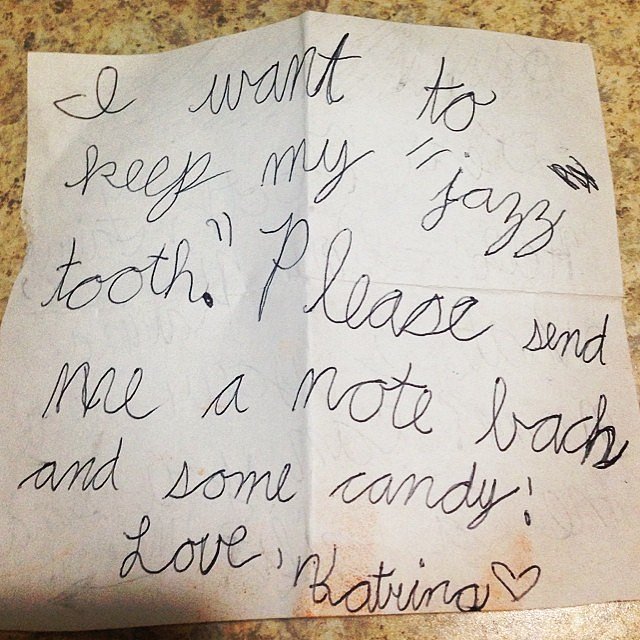 I want to
keep my "jazz
tooth." Please send
me a note back
and some candy!
Love, Katrina♡